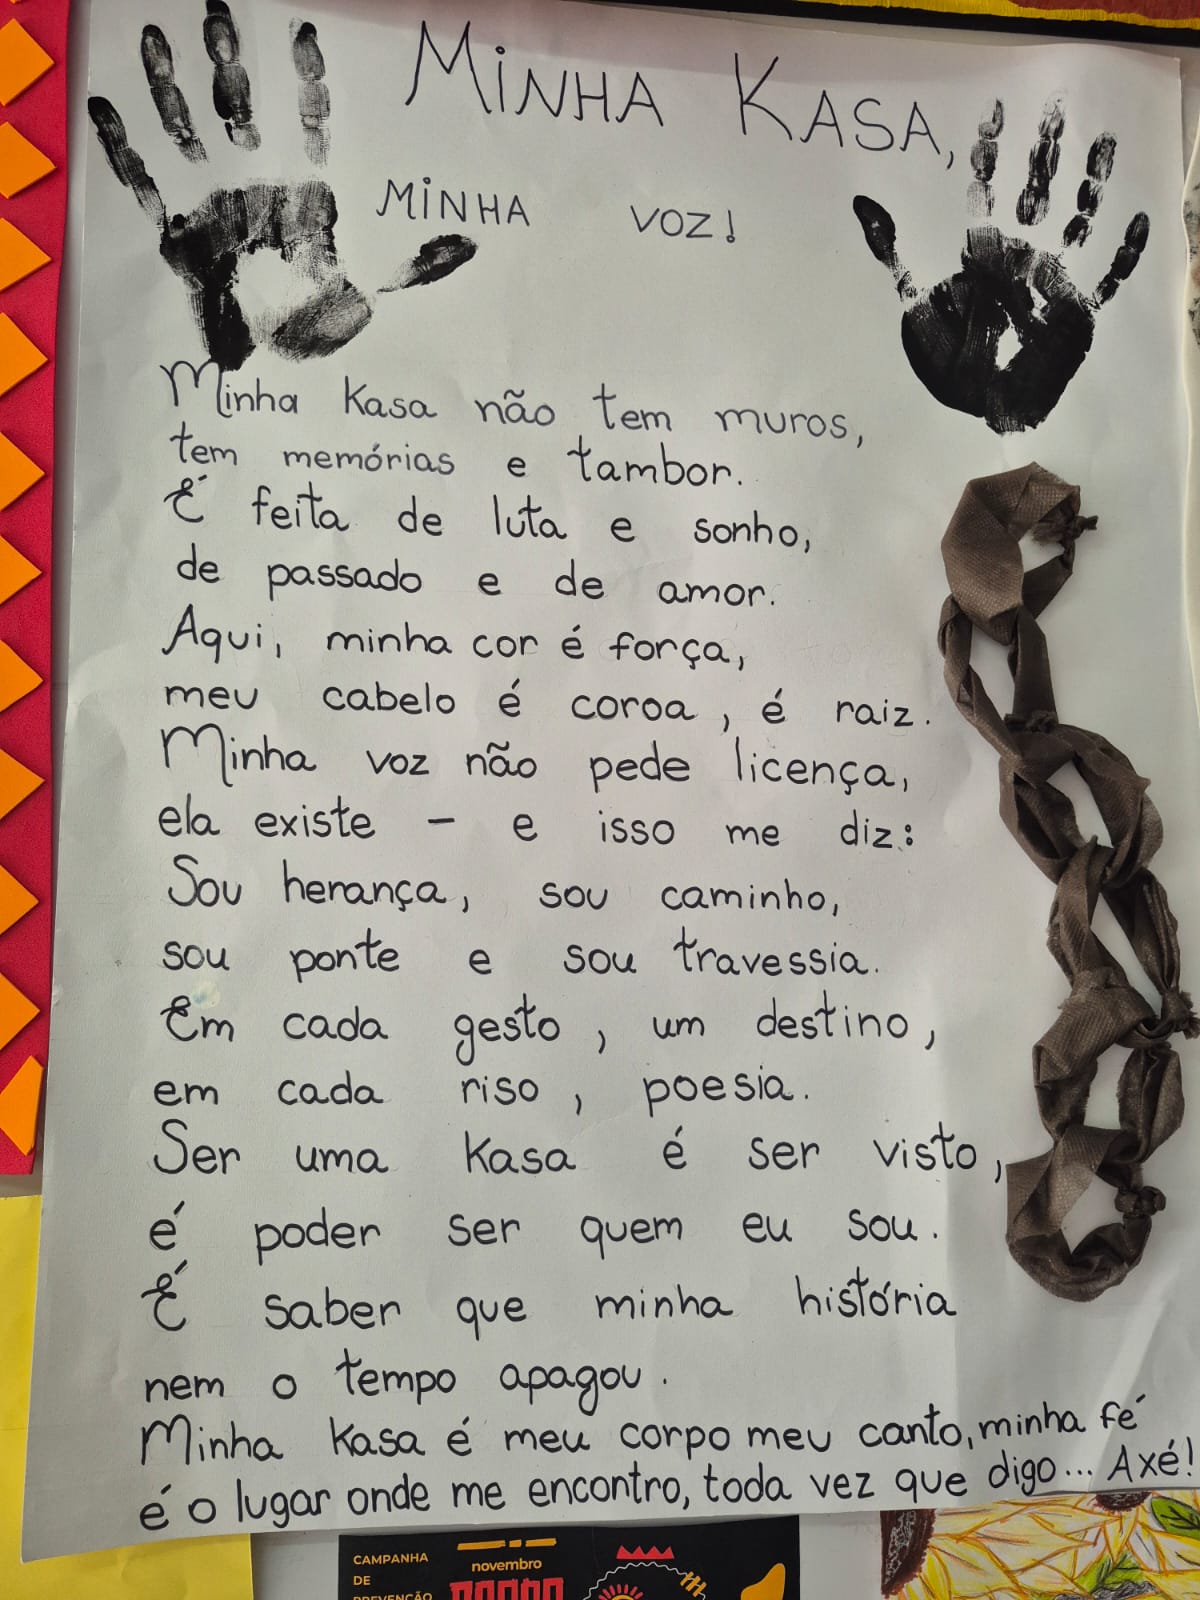 MINHA KASA,
MINHA VOZ!
Minha Kasa não tem muros,
tem memórias e tambor.
É feita de luta e sonho,
de passado e de amor.
Aqui, minha cor é força,
meu cabelo é coroa, é raiz.
Minha voz não pede licença,
ela existe - e isso me diz:
Sou herança, sou caminho,
sou ponte e sou travessia.
Em cada gesto, um destino,
em cada riso, poesia.
Ser uma Kasa é ser visto,
é poder ser quem eu sou.
É saber que minha história
nem o tempo apagou.
Minha Kasa é meu corpo meu canto, minha fé
é o lugar onde me encontro, toda vez que digo... Axé!
CAMPANHA
DE
PREVENÇÃO
novembro